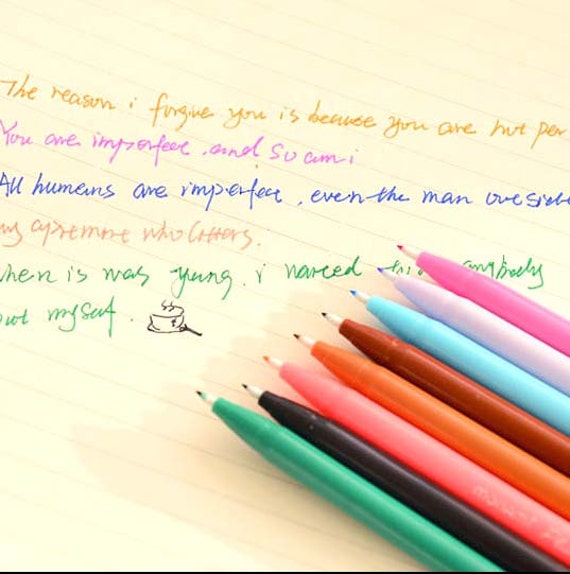 The reason i forgive you is because you are not per
You are imperfect .and so am i
All humans are imperfect , even the man outside
my apremne who litters.
when is was yung. i wanted anybody
but myself.